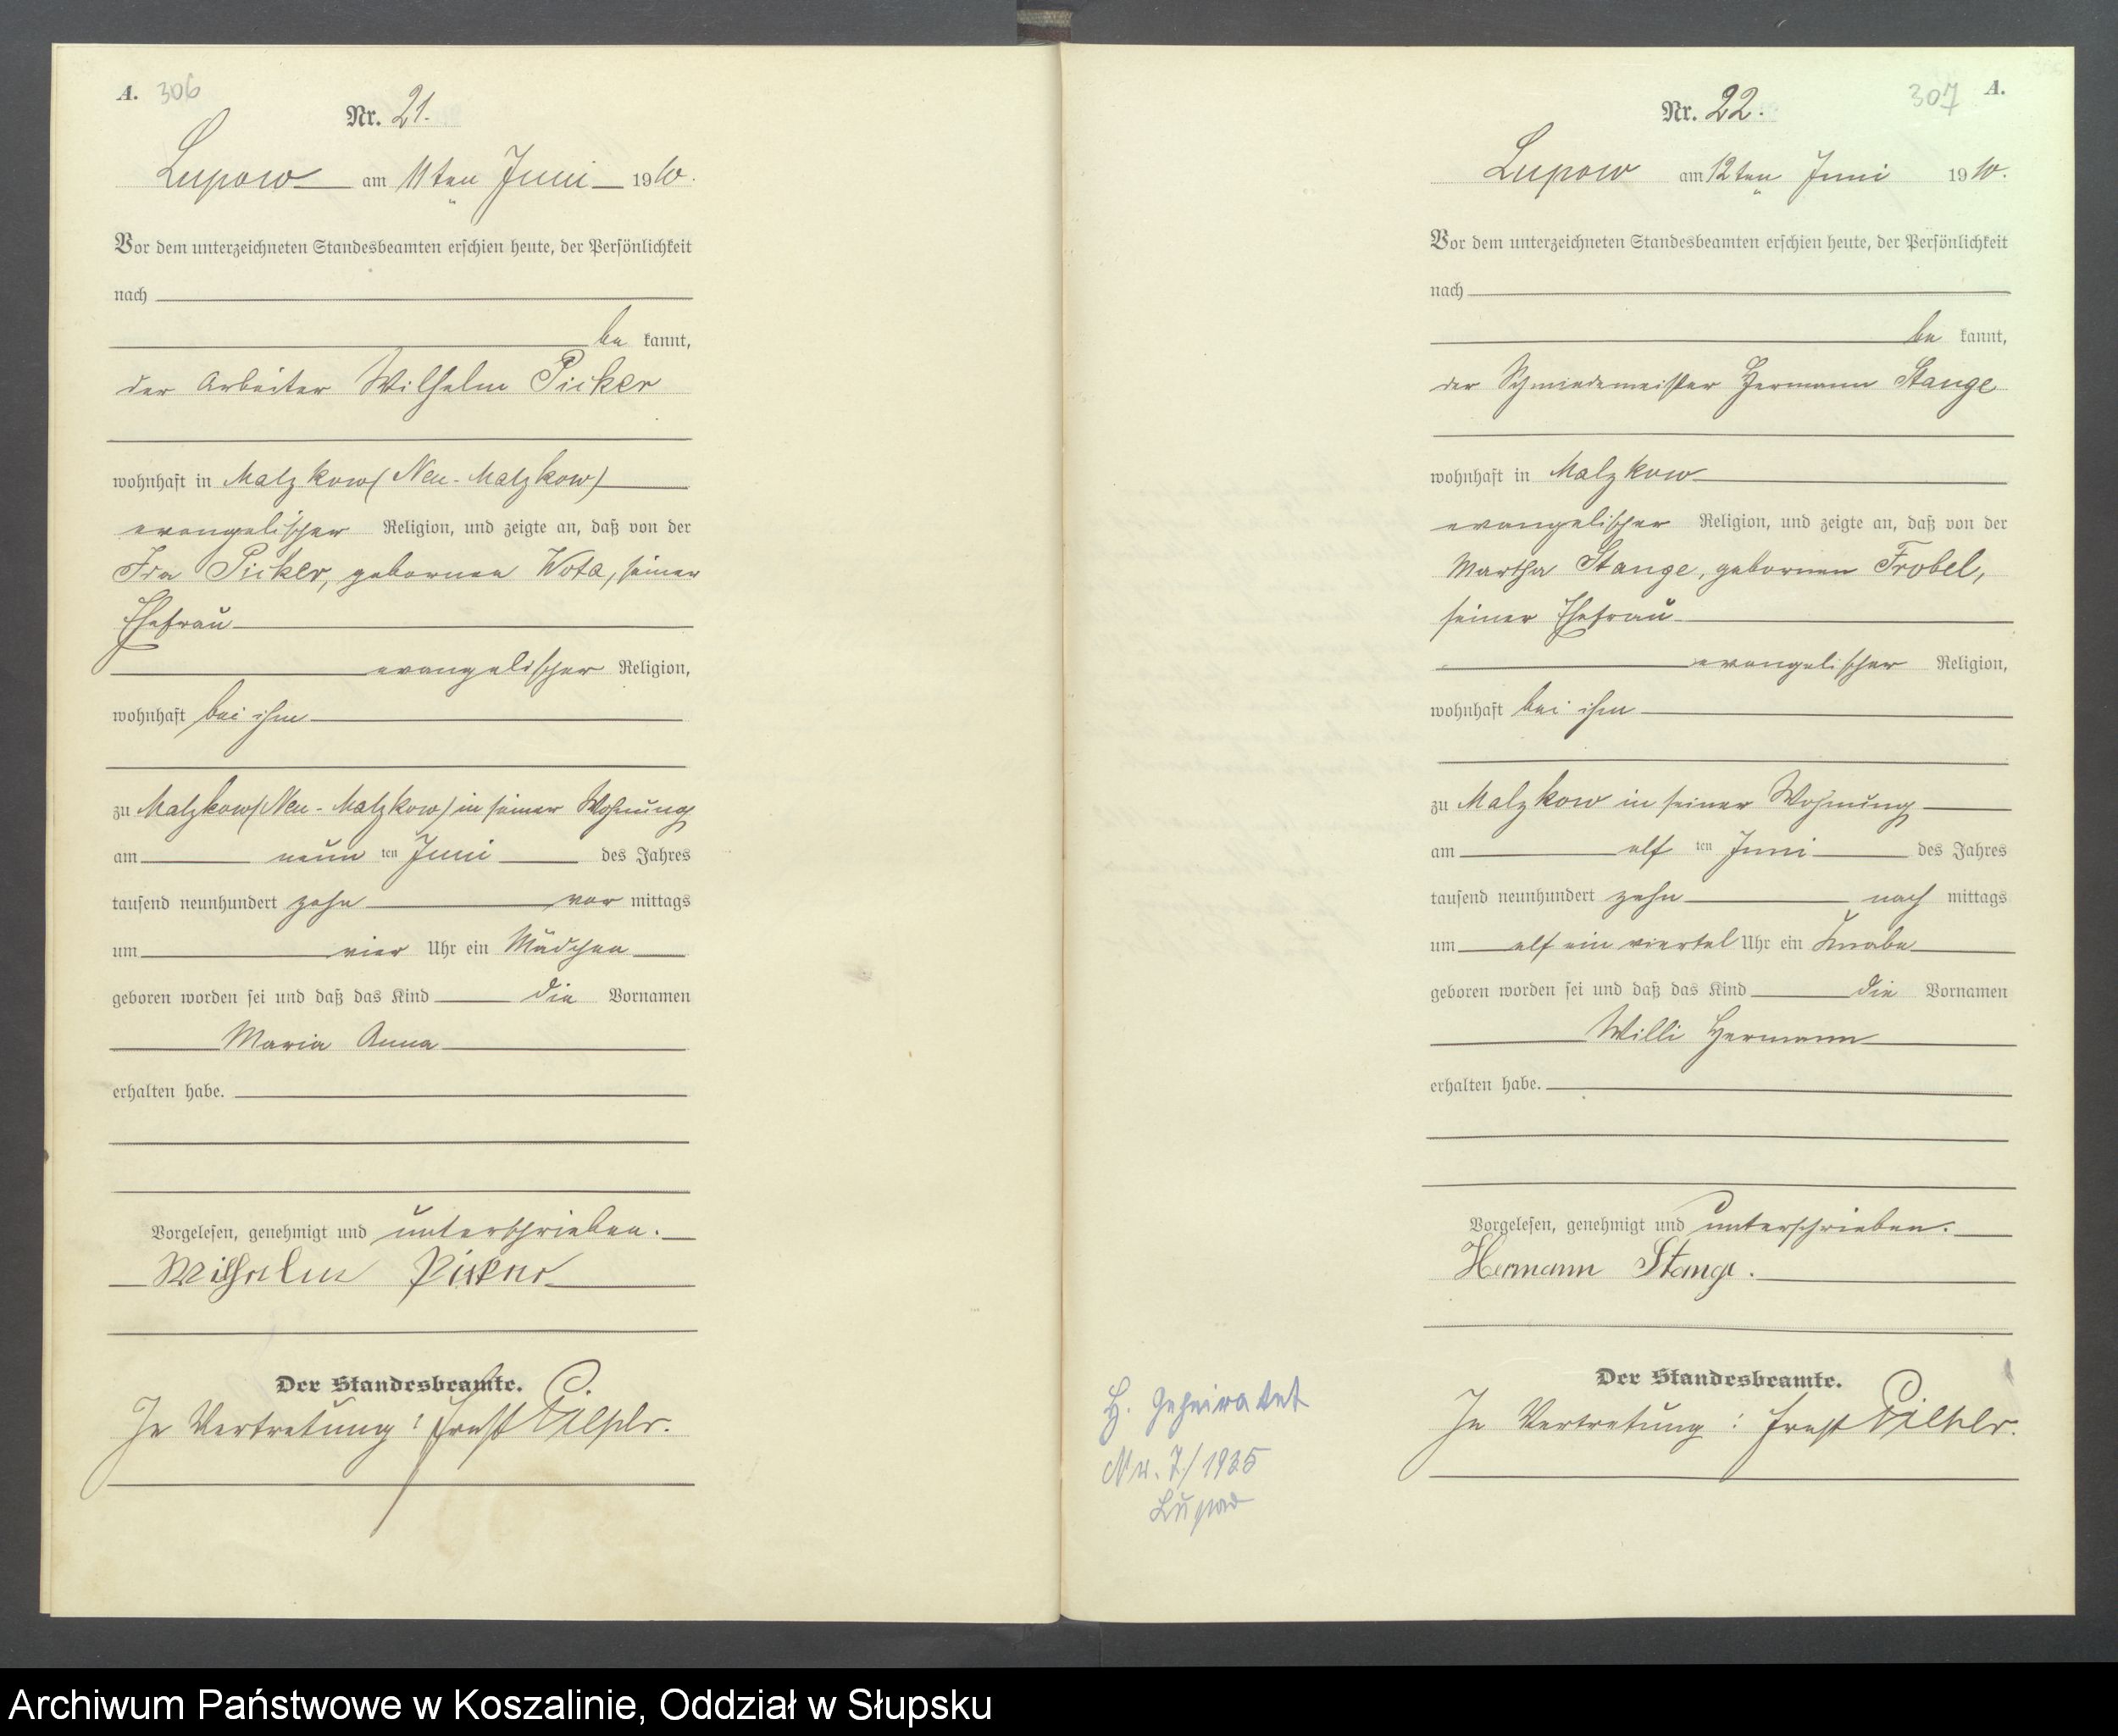 A. 306
Nr. 21.
Lupow am 11ten Juni 1910.
Vor dem unterzeichneten Standesbeamten erschien heute, der Persönlichkeit
nach
be kannt,
der Arbeiter Wilhelm Picker
wohnhaft in Malzkow (Neu-Malzkow)
evangelischer Religion, und zeigte an, daß von der
Picker, geborenen seiner
Ehefrau
evangelischer Religion,
wohnhaft bei ihm
zu Malzkow (Neu-Malzkow) in seiner Wohnung
am neun ten Juni des Jahres
tausend neunhundert zehn vor mittags
um vier Uhr ein Mädchen
geboren worden sei und daß das Kind die Vornamen
Maria Anna
erhalten habe.
Vorgelesen, genehmigt und unterschrieben.
Wilhelm Picker
Der Standesbeamte.
In Vertretung: Ernst
307 A.
Nr. 22.
Lupow am 12ten Juni 1910.
Vor dem unterzeichneten Standesbeamten erschien heute, der Persönlichkeit
nach
be kannt,
der Schmiedemeister Hermann Stange
wohnhaft in Malzkow
evangelischer Religion, und zeigte an, daß von der
Martha Stange, geborenen Frobel,
seiner Ehefrau
evangelischer Religion,
wohnhaft bei ihm
zu Malzkow in seiner Wohnung
am elf ten Juni des Jahres
tausend neunhundert zehn nach mittags
um elf ein viertel Uhr ein Knabe
geboren worden sei und daß das Kind die Vornamen
Willi Hermann
erhalten habe.
Vorgelesen, genehmigt und unterschrieben.
Hermann Stange.
Der Standesbeamte.
In Vertretung: Ernst
H. Geheiratet
Nr. 7/1935
Lupow
Archiwum Państwowe w Koszalinie, Oddział w Słupsku